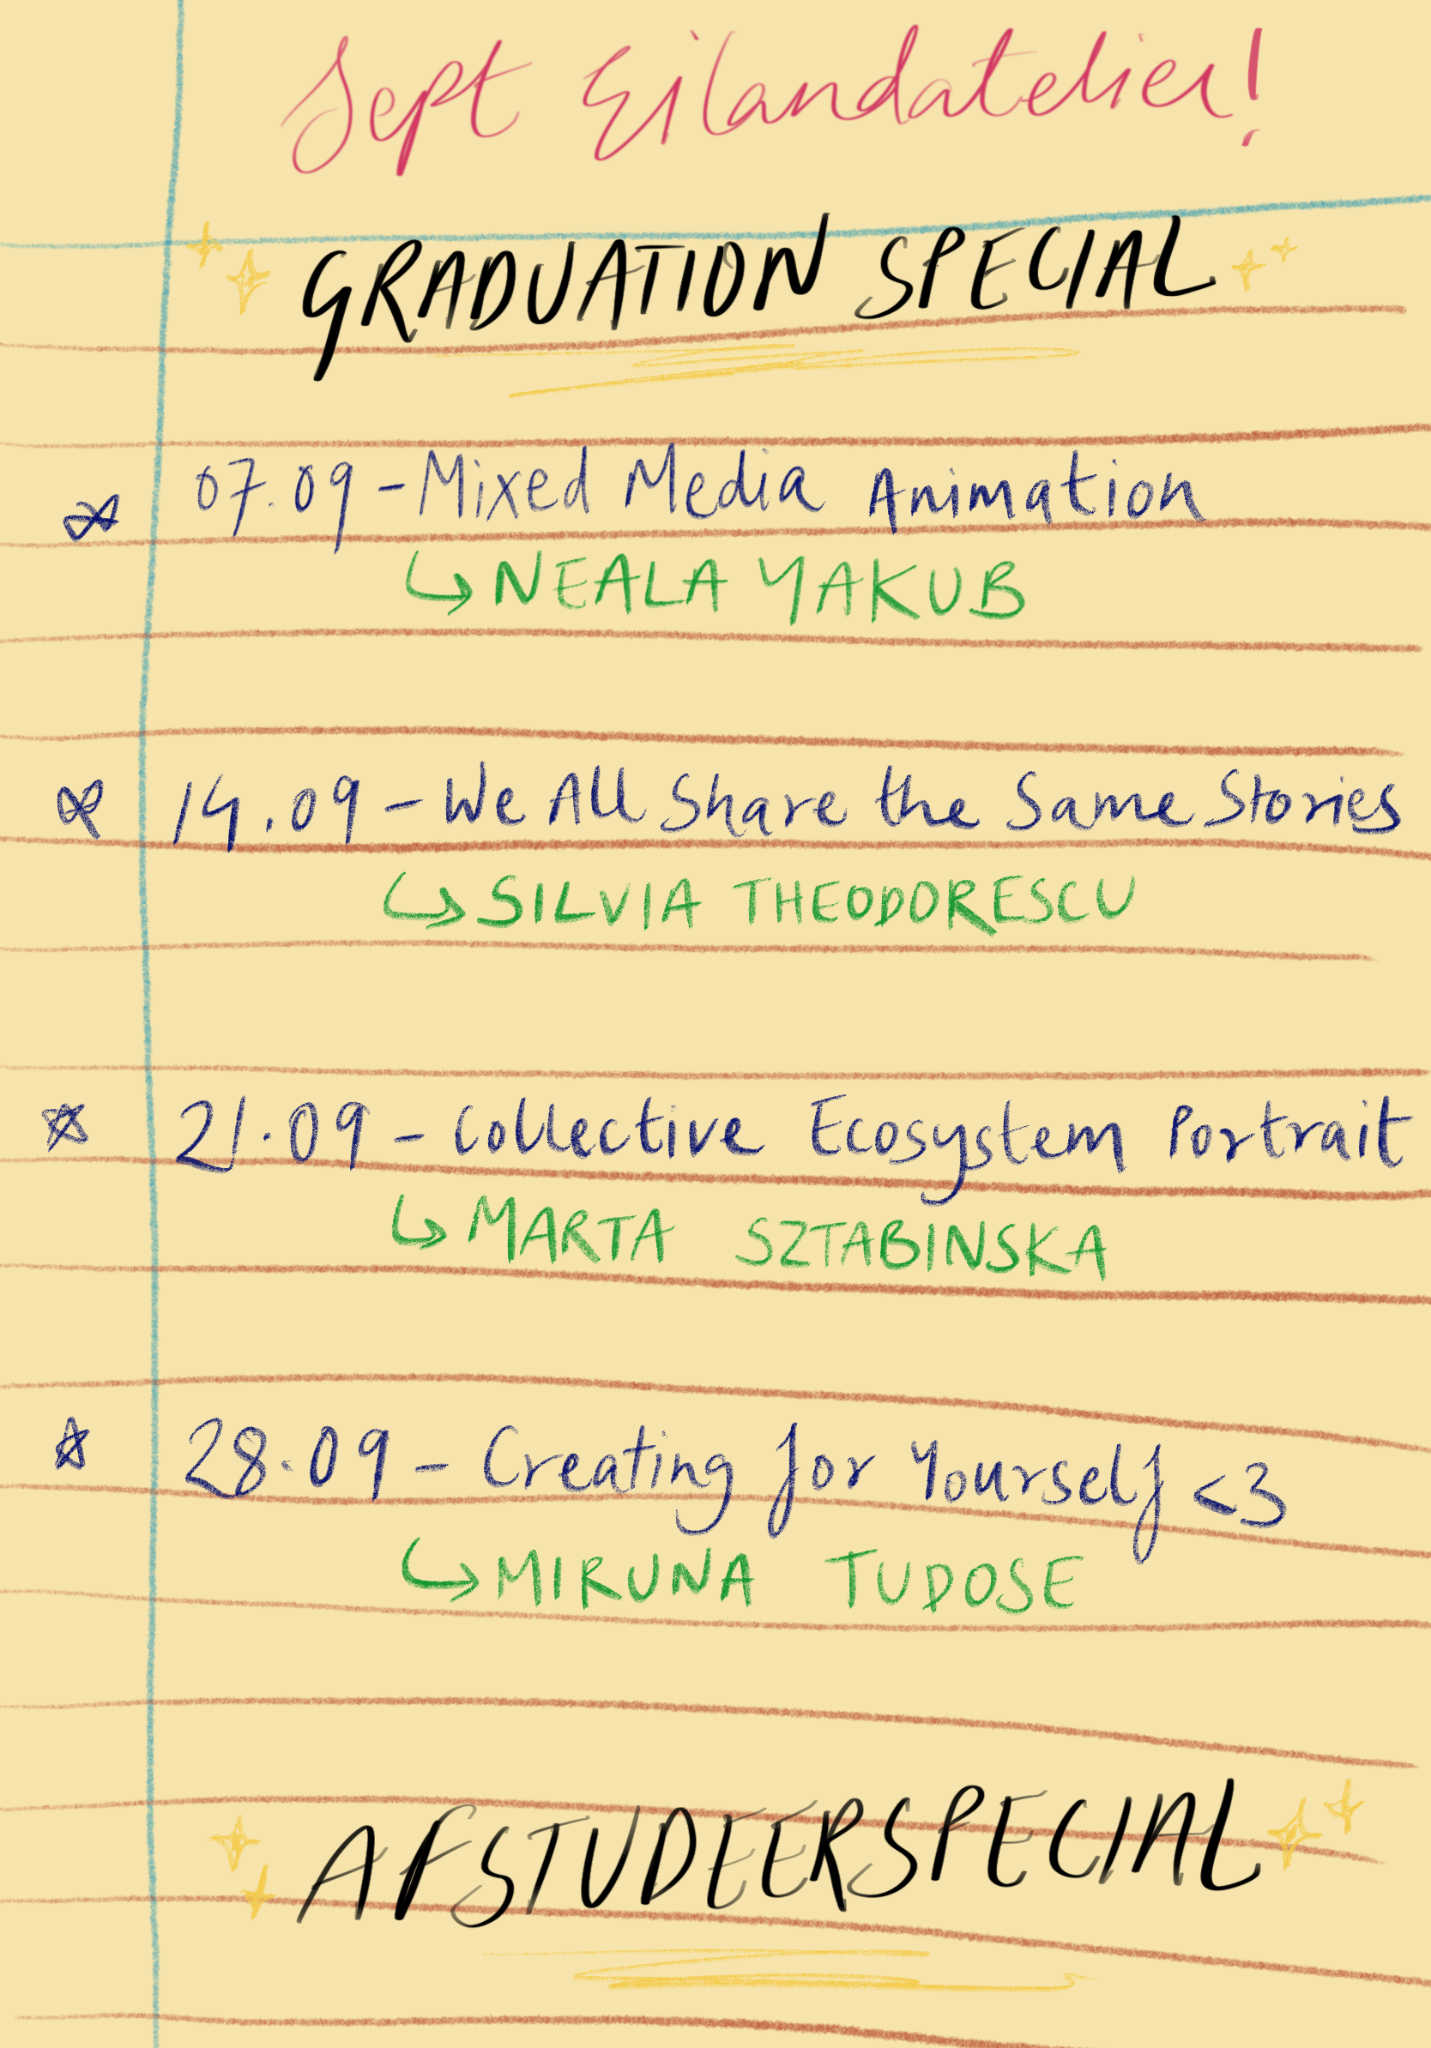 Sept Eilandatelier!
GRADUATION SPECIAL
07.09 - Mixed Media Animation
↳ NEALA YAKUB
14.09 - We All Share the Same Stories
↳ SILVIA THEODORESCU
21.09 - Collective Ecosystem Portrait
↳ MARTA SZTABINSKA
28.09 - Creating for Yourself <3
↳ MIRUNA TUDOSE
AFSTUDEERSPECIAL